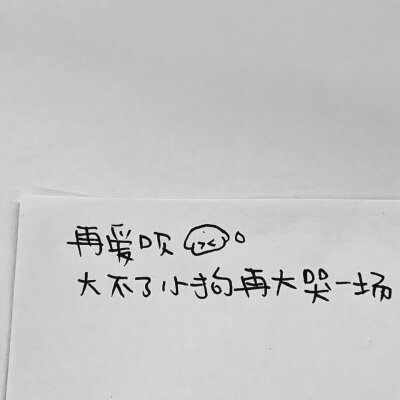 再爱呗。
大不了小狗再大哭一场